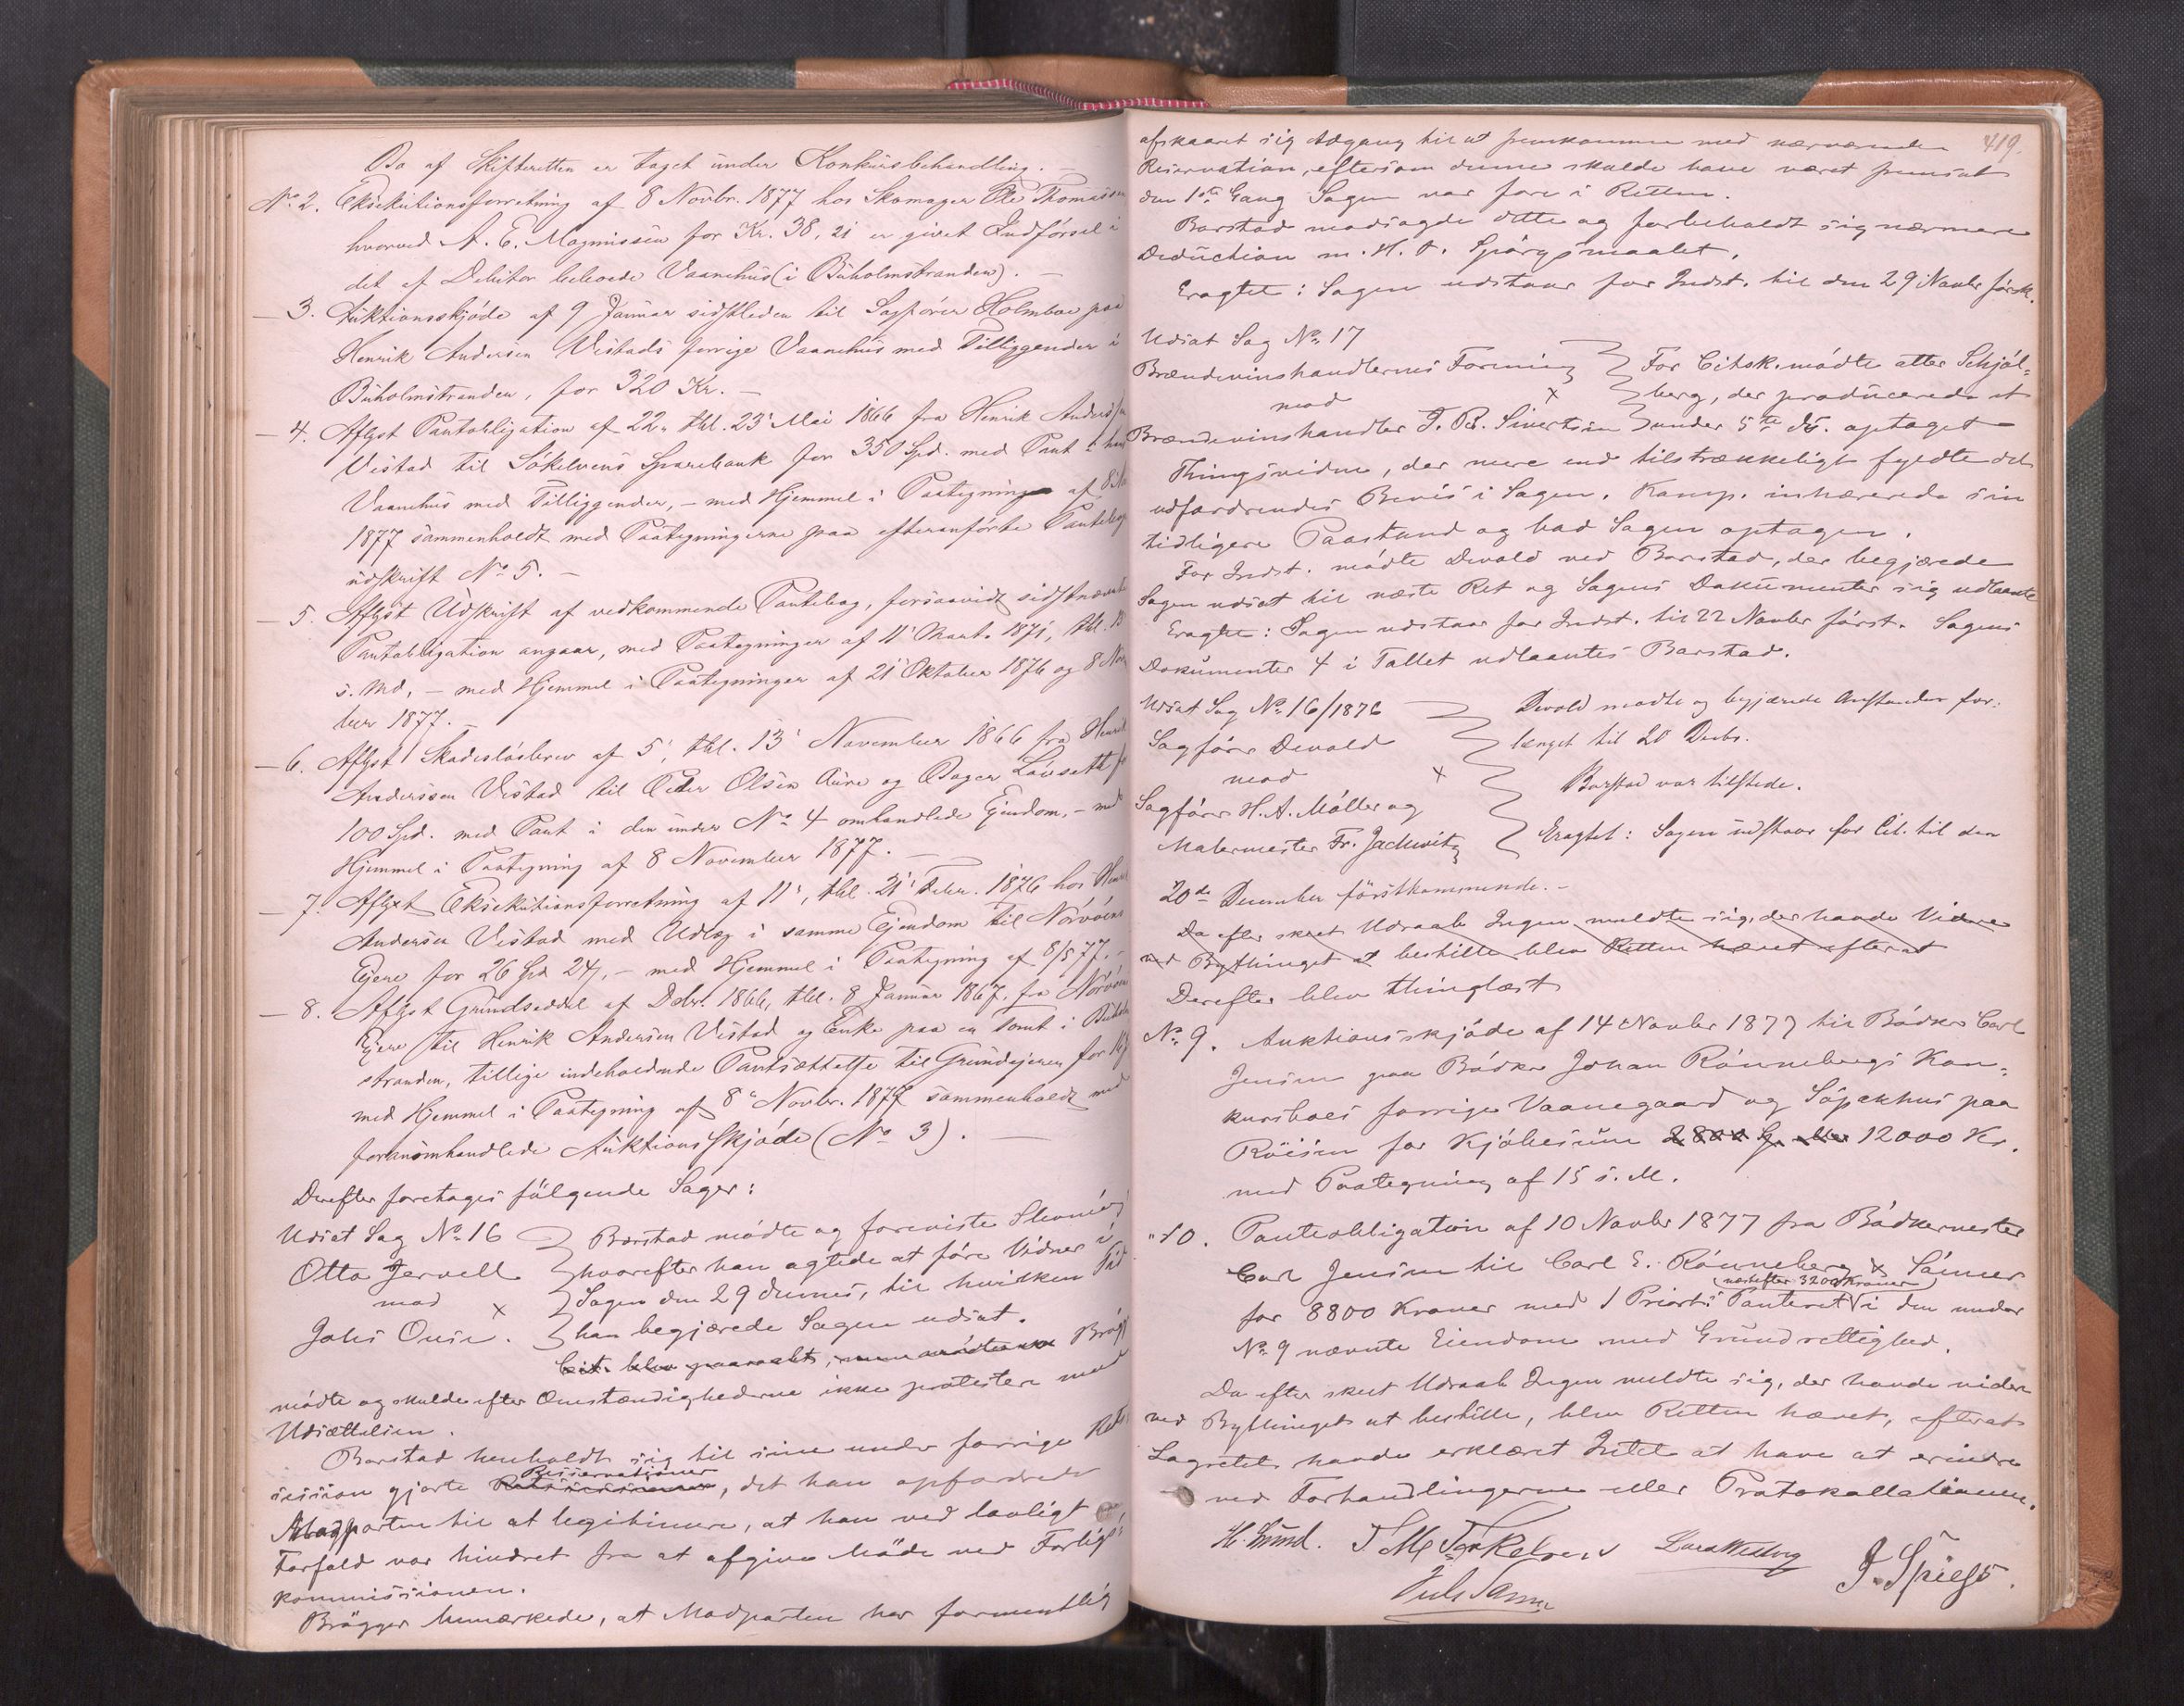 Bo af Skifteretten er taget under Konkursbehandling. —
No 2. Eksekutionsforretning af 8 Novbr. 1877 hos Skomager Ole Thomassen
hvorved A. E. Magnussen for Kr. 38,21 er givet Indførsel i
det af Debitor beboede Vaanehus (i Buholmstranden). —
— 3. Auktionsskjøde af 9 Januar sidstleden til Sagfører Holmboe paa
Henrik Andersen Vestads forrige Vaanehus med Tilliggender i
Buholmstranden, for 320 Kr. —
— 4. Aflyst Pantobligation af 22, thl. 23 Mai 1866 fra Henrik Anderssen
Vestad til Søkelvens Sparebank for 350 Spd. med Pant i hans
Vaanehus med Tilliggender, — med Hjemmel i Paategninger af 8
1877 sammenholdt med Paategningerne paa efteranførte Pantebogs
udskrift No 5. —
— 5. Aflyst Udskrift af vedkommende Pantebog, forsaavidt sidstnævnte
Pantobligation angaar, med Paategninger af 11 Marts 1871, thl. 13
s. Md, — med Hjemmel i Paategninger af 21 Oktober 1876 og 8 Novem
ber 1877. —
— 6. Aflyst Skadesløsbrev af 5, thl. 13 November 1866 fra Henrik
Anderssen Vestad til Peder Olsen Aure og Bager Løvseth for
100 Spd. med Pant i den under No 4 omhandlede Ejendom, — med
Hjemmel i Paategning af 8 November 1877. —
— 7. Aflyst Eksekutionsforretning af 11, thl. 21 Febr. 1876 hos Henrik
Andersen Vestad med Udlæg i samme Ejendom til Nørvøens
Ejere for 26 Spd 24, — med Hjemmel i Paategning af 8/5 77. —
— 8. Aflyst Grundseddel af Debr. 1866, thl. 8 Januar 1867, fra Nørvøens
Ejere til Henrik Andersen Vestad og Enke paa en Tomt i Buholm
stranden, tillige indeholdende Pantsættelse til Grundejeren for
med Hjemmel i Paategning af 8 Novbr. 1877 sammenholdt med
foranomhandlede Auktionsskjøde (No 3). —
Derefter foretoges følgende Sager:
Udsat Sag No 16
Otto Jervell
mod
Johs Onsn.
Barstad mødte og foreviste Stevning
hvorefter han agtede at føre Vidner i
Sagen den 29 dennes, til hvilken Tid
han begjærede Sagen udsat.
Cit. blev paaraabt, Brøgger
mødte og skulde efter Omstændighederne ikke protestere mod
Udsættelsen.
Barstad henholdt sig til sine under forrige Rets
session gjorte Reservationer, det han opfordrede
Modparten til at legitimere, at han ved lovligt
Forfald var hindret fra at afgive Møde ved Forligs
kommissionen.
Brøgger bemærkede, at Modparten har formentlig
419.
afskaaret sig Adgang til at fremkomme med nærværende
Reservation, eftersom denne skulde have været fremsat
den 1ste Gang Sagen var fore i Retten.
Barstad modsagde dette og forbeholdt sig nærmere
Deduction m. H. t. Spørgsmaalet.
Eragtet: Sagen udstaar for Indst. til den 29 Novbrførstk.
Udsat Sag No 17
Brændevinshandlernes Forening
mod
Brændevinshandler T. B. Sivertsen
For Citsk. mødte atter Schjøl-
berg, der producerede et
under 5te ds. optaget
Thingsvidne, der mere end tilstrækkeligt fyldte det
udfordrendes Bevis i Sagen. Komp. inhærerede sin
tidligere Paastand og bad Sagen optagen.
For Indst. mødte Devold ved Barstad, der begjærede
Sagen udsat til næste Ret og Sagens Dokumenter sig udlaante
Eragtet: Sagen udstaar for Indst. til 22 Novbr først. Sagens
Dokumenter 4 i Tallet udlaantes Barstad.
Udsat Sag No 16/1876
Sagfører Devold
mod
Sagfører H. A. Møller og
Malermester Fr. Jackwitz
Devold mødte og begjærede Anstanden for-
længet til 20 Decbr.
Barstad var tilstede.
Eragtet: Sagen udstaar for Cit. til den
20de December førstkommende. —
Da efter skeet Udraab Ingen meldte sig, der havde Videre
ved Bythinget at bestille blev Retten hævet efterat
Derefter blev thinglæst
No 9. Auktionsskjøde af 14 Novbr 1877 til Bødker Carl
Jensen paa Bødker Johan Rønnebergs Kon-
kursboes forrige Vaanegaard og Søpakhus paa
Røisen for Kjøbesum 12000 Kr.
med Paategning af 15 s. M.
" 10. Panteobligation af 10 Novbr 1877 fra Bødkermester
Carl Jensen til Carl E. Rønneberg & Sønner
(næstefter 3200 Kroner)
for 8800 Kroner med 1 Priorts Panteret i den under
No 9 nævnte Eiendom med Grundrettighed.
Da efter skeet Udraab Ingen meldte sig, der havde videre
ved Bythinget at bestille, blev Retten hævet, efterat
Lagrettet havde erklæret Intet at have at erindre
ved Forhandlingerne eller Protokollationen.
H. Lund.
J. Spiess.